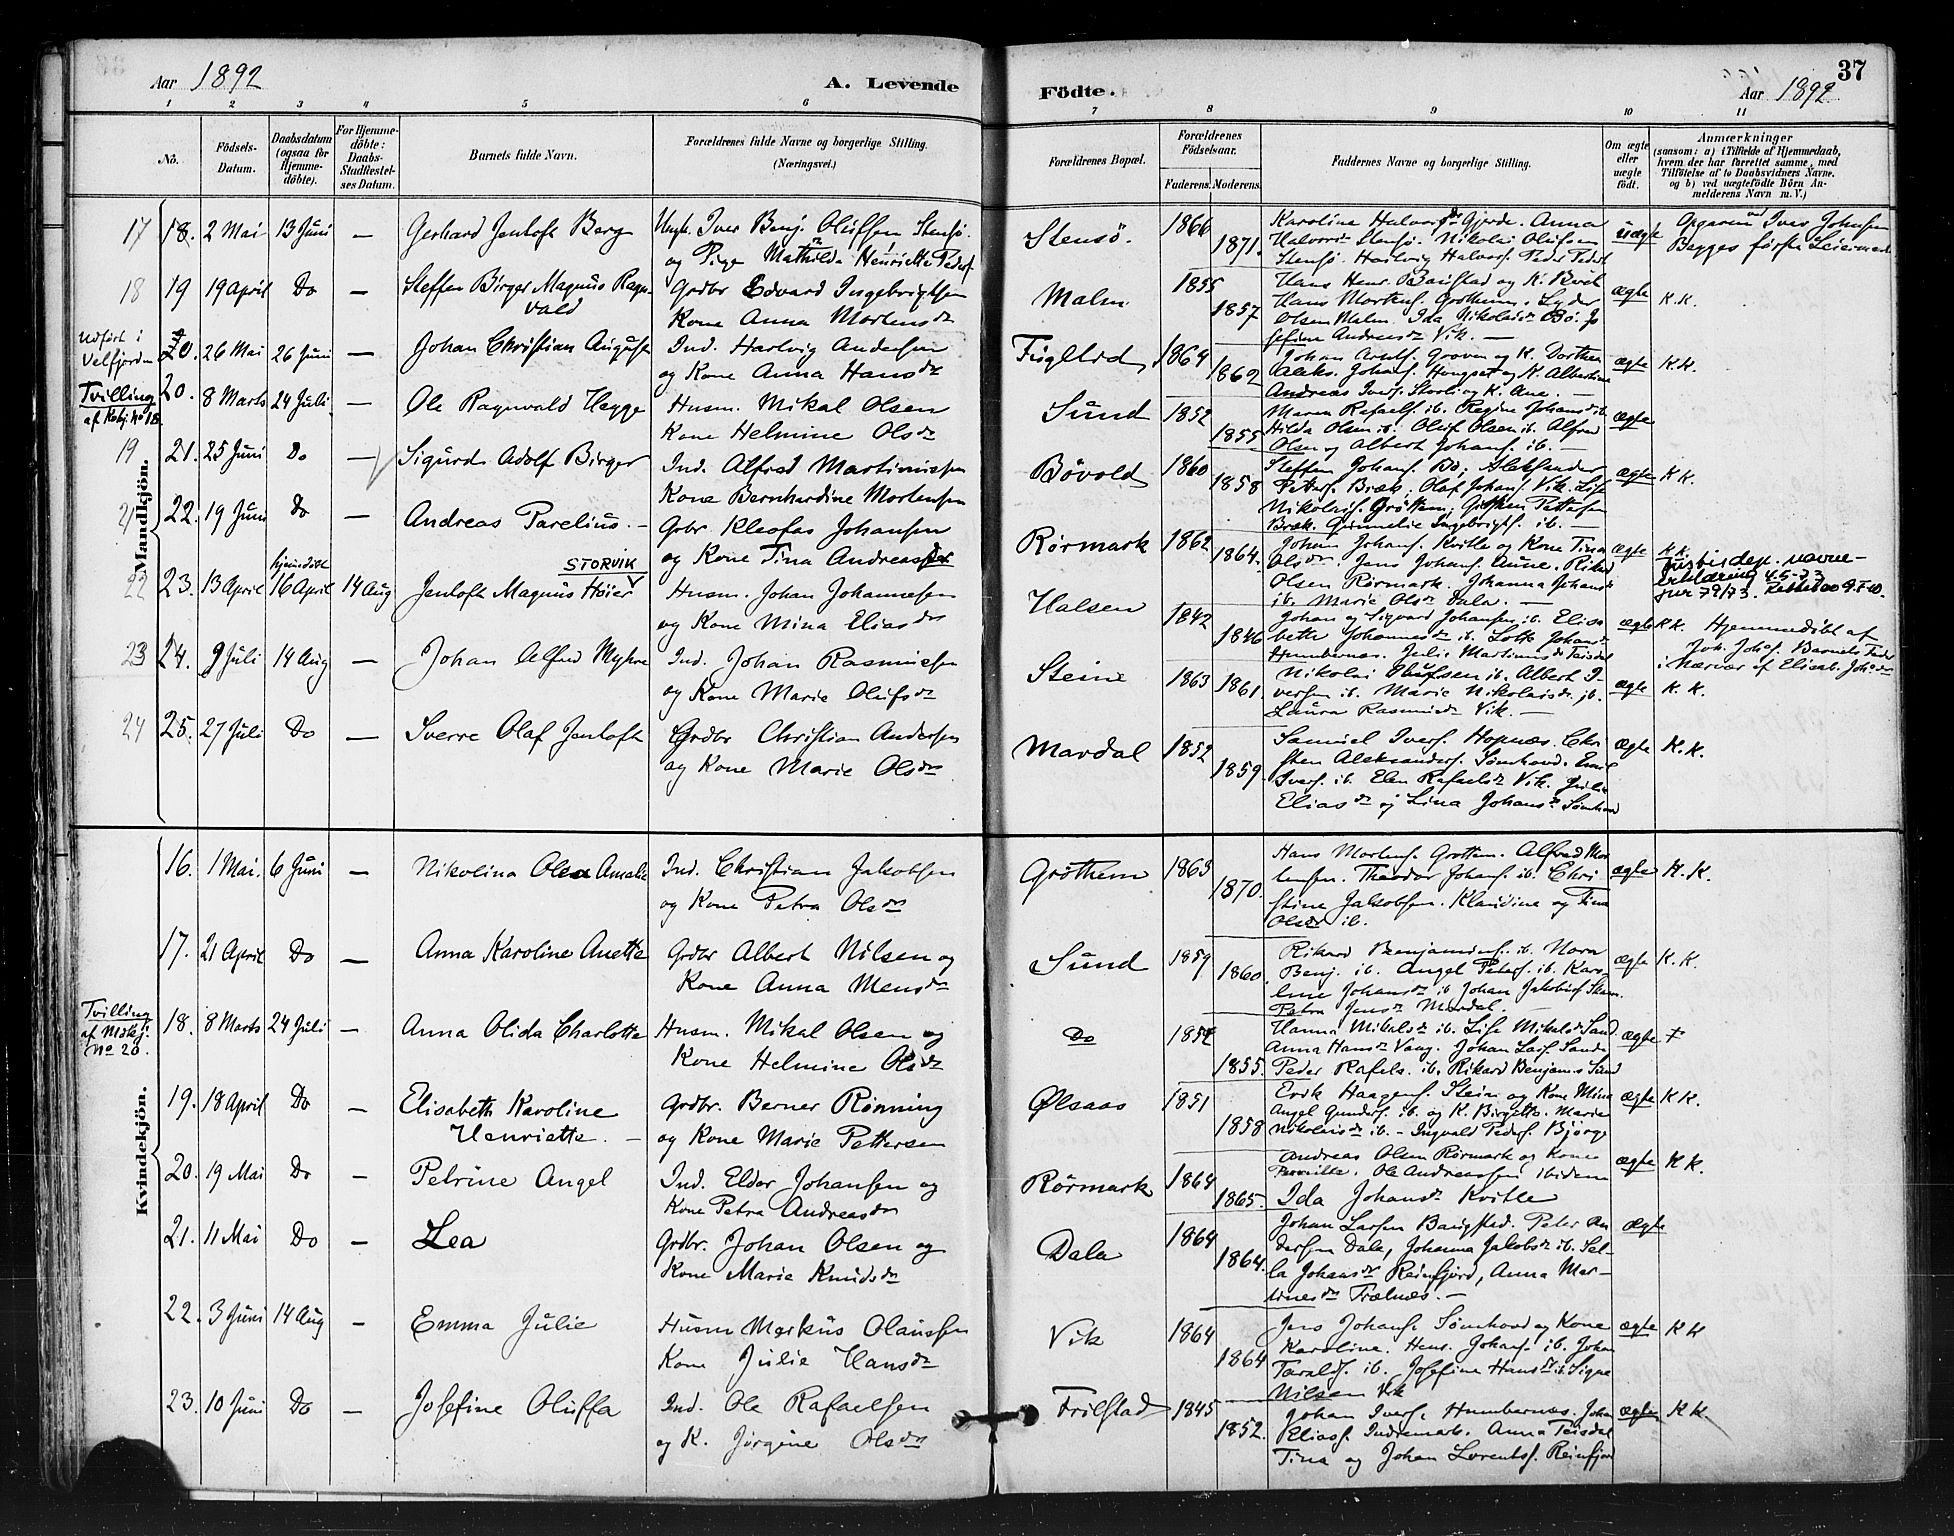 Aar 1892
A. Levende
Födte.
37
Aar 1892
1 2 3 4 5 6 7 8 9 10 11
No.
Födsels-Datum.
Daabsdatum (ogsaa for Hjemme-döbte).
For Hjemme-döbte: Daabs-Stadfæstel-ses Datum.
Barnets fulde Navn.
Forældrenes fulde Navne og borgerlige Stilling.
(Næringsvei.)
Forældrenes Bopæl.
Forældrenes Födselsaar.
Faderens. Moderens.
Faddernes Navne og borgerlige Stilling.
Om ægte eller uægte födt.
Anmærkninger
(saasom: a) i Tilfælde af Hjemmedaab,
hvem der har forrettet samme, med
Tilföielse af to Daabsvidners Navne.
og b) ved uægtefödte Börn An-
melderens Navn m. V.)
Mandkjön.
17 18. 2 Mai 13 Juni — Gerhard Jentoft Berg
Ungk. Iver Benj. Oluffsen Stensö.
og Pige Mathilda Henriette Peders
Stensö. 1866 1871.
Karoline Halvorsdr Gjerde. Anna
Stensö. Nikolai Olufsen
Stensö. Hartvig Halvors. Peder Peders
uægte
Begges første Leiermaal
18 19 19 April Do — Steffen Birger Magnus Ragn-
vald
Grdbr Edvard Ingebrigtsen
Kone Anna Mortensdr
Malm 1855 1857
Hans Henr. Bangstad og K. Berit
Hans Mortens. Grøthem. Lyder
Olsen Malm. Ida Nikolaisdr Bö. Jo
sefine Andreasdr Vik. —
ægte K.K.
Udført i
Velfjorden
20. 26 Mai 26 Juni — Johan Christian August
Ind. Hartvig Andersen
og Kone Anna Hansdr
Fuglstad 1864 1862
Johans. Hongset og K. Albertine
Andreas Ivers. Storli og K. Ane. —
ægte K.K.
Tvilling
af Kvkj. No 18.
20. 8 Marts 24 Juli. — Ole Ragnvald Hegge
Husm. Mikal Olsen
Kone Helmine Olsdr
Sund 1852 1855
Maren Rafaels. ib. Regine Johansdr ib.
Hilda Olsen ib. Oluf Olsen ib. Alfred
Olsen og Albert Johans. ib. —
ægte
19 21. 25 Juni Do — Sigurd Adolf Birger
Ind. Alfred Martinussen
Kone Bernhardine Mortensen
Bövold 1860 1858
Steffen Johans. Bö. Aleksander
Petters. Bræk. Olaf Johans. Vik. Lise
Nikolais. Grøttem.
Bræk. Ingebrigts. ib. —
ægte K K.
21 22. 19 Juni Do — Andreas Parelius. —
Grbr Kleofas Johansen
og Kone Tina Andreasdr
Rörmark 1862 1864.
Johan Johans. Kvitle og Kone Tina
Olsdr. Jens Johans. Aune. Rikard
Olsen Rörmark. Johanna Johansdr
ib. Marie Olsdr Dala. —
ægte K.K.
22 23. 13 April hjemmedöbt 16 April 14 Aug
STORVIK
Jentoft Magnus Höier
Husm. Johan Johannesen
og Kone Mina Eliasdr
Halsen 1842 1846
Johan og Sigvard Johansen ib. Elisa
beth Johannesdr ib. Lotte Johansdr
Humbernæs. Julie Martinusdr Teisdal
ægte
Justisdep. navne-
erklæring 4.5-73
jnr 79/73.
K K. Hjemmedöbt af
Joh. Johs. Barnets Fader
i Nærvær af Elisab. Johsdr
23 24. 9 Juli 14 Aug — Johan Alfred Myhre
Ind. Johan Rasmussen
og Kone Marie Olufsdr
Steine 1863 1861.
Nikolai Olufsen ib. Albert I-
versen ib. Marie Nikolaisdr ib.
Laura Rasmusdr Vik. —
ægte K. K.
24 25. 27 Juli Do — Sverre Olaf Jentoft
Grdbr Christian Andersen
og Kone Marie Olsdr
Mardal 1852 1859.
Samuel Ivers. Hopnæs. Chri
sten Aleksanders. Sömhovd. Emil
Ivers. ib. Elen Rafaelsdr Vik. Julie
Eliasdr og Lina Johansdr Sömhovd
ægte K.K.
Kvindekjön.
16. 1 Mai. 6 Juni — Nikolina Olea Amalie
Ind. Christian Jakobsen
og Kone Petra Olsdr
Grøthem 1863 1870.
Hans Mortens. Grøttem. Alfred Mor
tensen. Theodor Johans. ib. Chri
stine Jakobsen. Klaudine og Tina
Olsdr ib.
ægte K.K.
17. 21 April Do — Anna Karoline Anette
Grdbr Albert Nilsen og
Kone Anna Mensdr
Sund 1859 1860
Rikard Benjamins. ib. Nora
Benj. ib. Angel Peters. ib. Karo-
line Johansdr ib. Johan Jakobs.
Petra Jensdr Mardal. —
ægte K.K.
Tvilling
af Mskj.
No 20.
18. 8 Marts 24 Juli — Anna Olida Charlotte
Husm. Mikal Olsen og
Kone Helmine Olsdr
Do 1852 1855.
Hanna Mikalsdr ib. Lise Mikalsdr Sand
Anna Hansdr Vaag. Johan Lars. Sande
Peder Rafels. ib. Rikard Benjams Sund
ægte +
19. 18 April Do — Elisabeth Karoline
Henriette. —
Grdbr. Berner Rönning
og Kone Marie Pettersen
Ølsaas 1851 1858
Erik Haagens. Stein og Kone Mina
Angel Gunders. ib. og K. Birgitte. Marie
Nikolaisdr ib. — Ingvald Peders. Bjørge
ægte K K.
20. 19 Mai Do — Petrine Angel
Ind. Eldor Johansen og
Kone Petra Andreasdr
Rörmark 1864 1865.
Andreas Olsen Rörmark og Kone
Pernille. Ole Andreassen ibidem
Ida Johansdr Kvitle
ægte K K.
21. 11 Mai Do — Lea
Grdbr. Johan Olsen og
Kone Marie Knudsdr
Dala 1864 1864.
Johan Larsen Bangstad. Peter An
dersen Dala, Johanna Jakobsdr ib. Sel-
la Johansdr Reinfjord, Anna Mar-
tinesdr Trælnæs. —
ægte
22. 3 Juni 14 Aug — Emma Julie
Husm Markus Olaussen
Kone Julie Hansdr
Vik 1864 1864
Jens Johans. Sömhovd og Kone
Karoline. Hens. Johans. ib. Johan
Taralds. ib. Josefine Hansdr ib. Signe
Nilsen Vik
ægte K K
23. 10 Juni Do — Josefine Oluffa
Ind. Ole Rafaelsen
og K. Jörgine Olsdr
Frilstad 1845 1852.
Johan Ivers. Humbernæs. Johan
Elias. Indremark. Anna Teisdal
Tina og Johan Lorents. Reinfjord
ægte K K